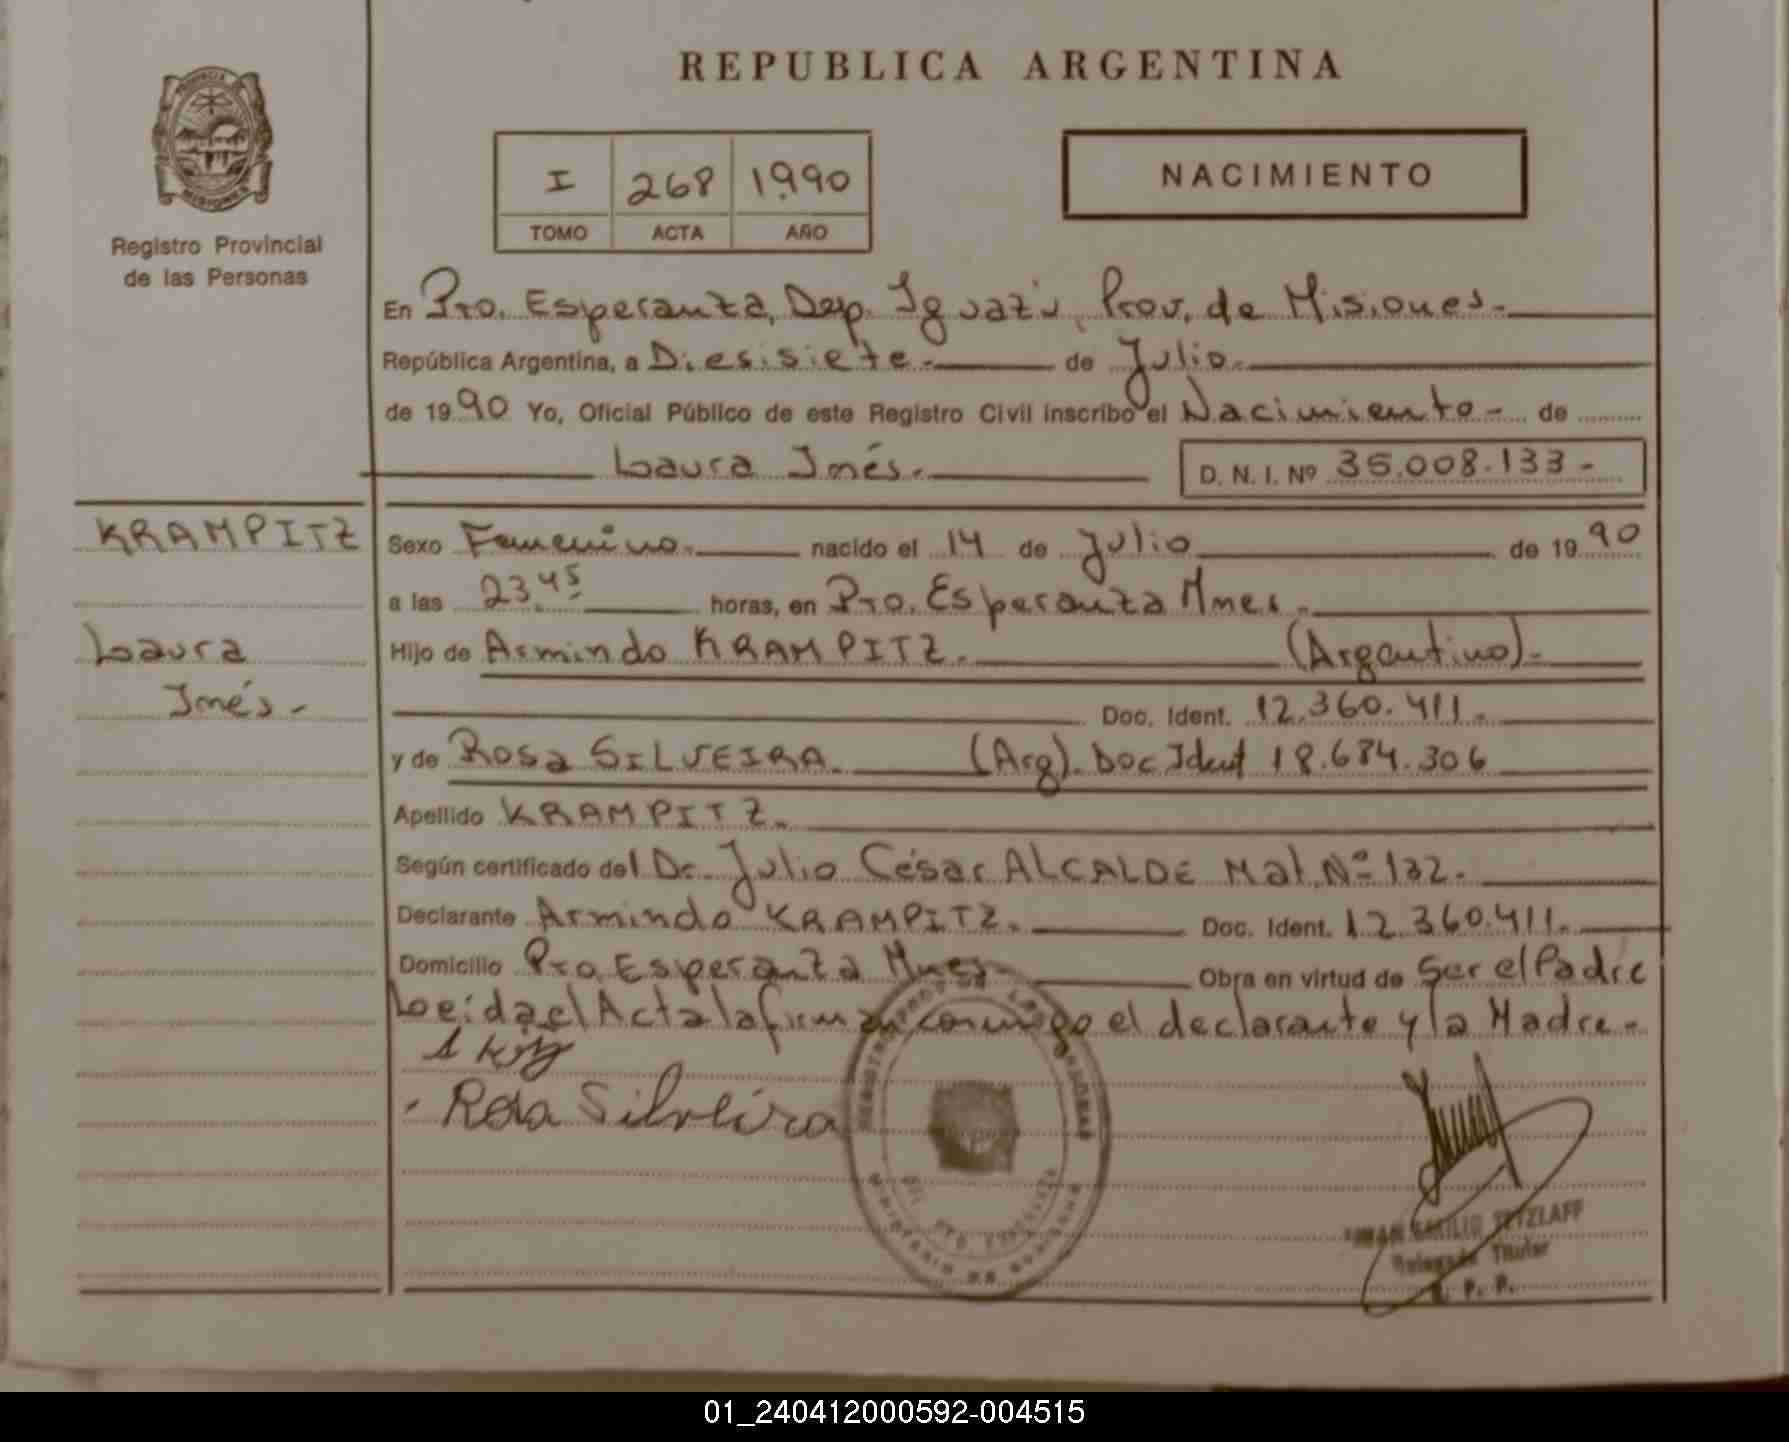 REPUBLICA ARGENTINA
PROVINCIA
MISIONES
Registro Provincial
de las Personas
I 268 1990
TOMO ACTA AÑO
NACIMIENTO
En Pto. Esperanza, Dep. Iguazú, Prov. de Misiones.-
República Argentina, a Diesisiete.- de Julio.-
de 19 90 Yo, Oficial Público de este Registro Civil inscribo el Nacimiento- de
Laura Inés.- D. N. I. Nº 35.008.133-
KRAMPITZ
Laura
Inés.-
Sexo Femenino.- nacido el 14 de Julio de 19 90
a las 23.45 horas, en Pto. Esperanza Mnes.-
Hijo de Armindo KRAMPITZ.- (Argentino).-
Doc. Ident. 12.360.411.-
y de Rosa SILVEIRA.- (Arg). Doc Ident 18.684.306
Apellido KRAMPITZ.-
Según certificado del Dr. Julio César ALCALDE Mat. Nº 132.-
Declarante Armindo KRAMPITZ.- Doc. Ident. 12.360.411.-
Domicilio Pto. Esperanza Mnes.- Obra en virtud de Ser el Padre
Leida el Acta la firman conmigo el declarante y la Madre.-
Rosa Silveira
TETZLAFF
Delegado Titular
R. P. P.
01_240412000592-004515